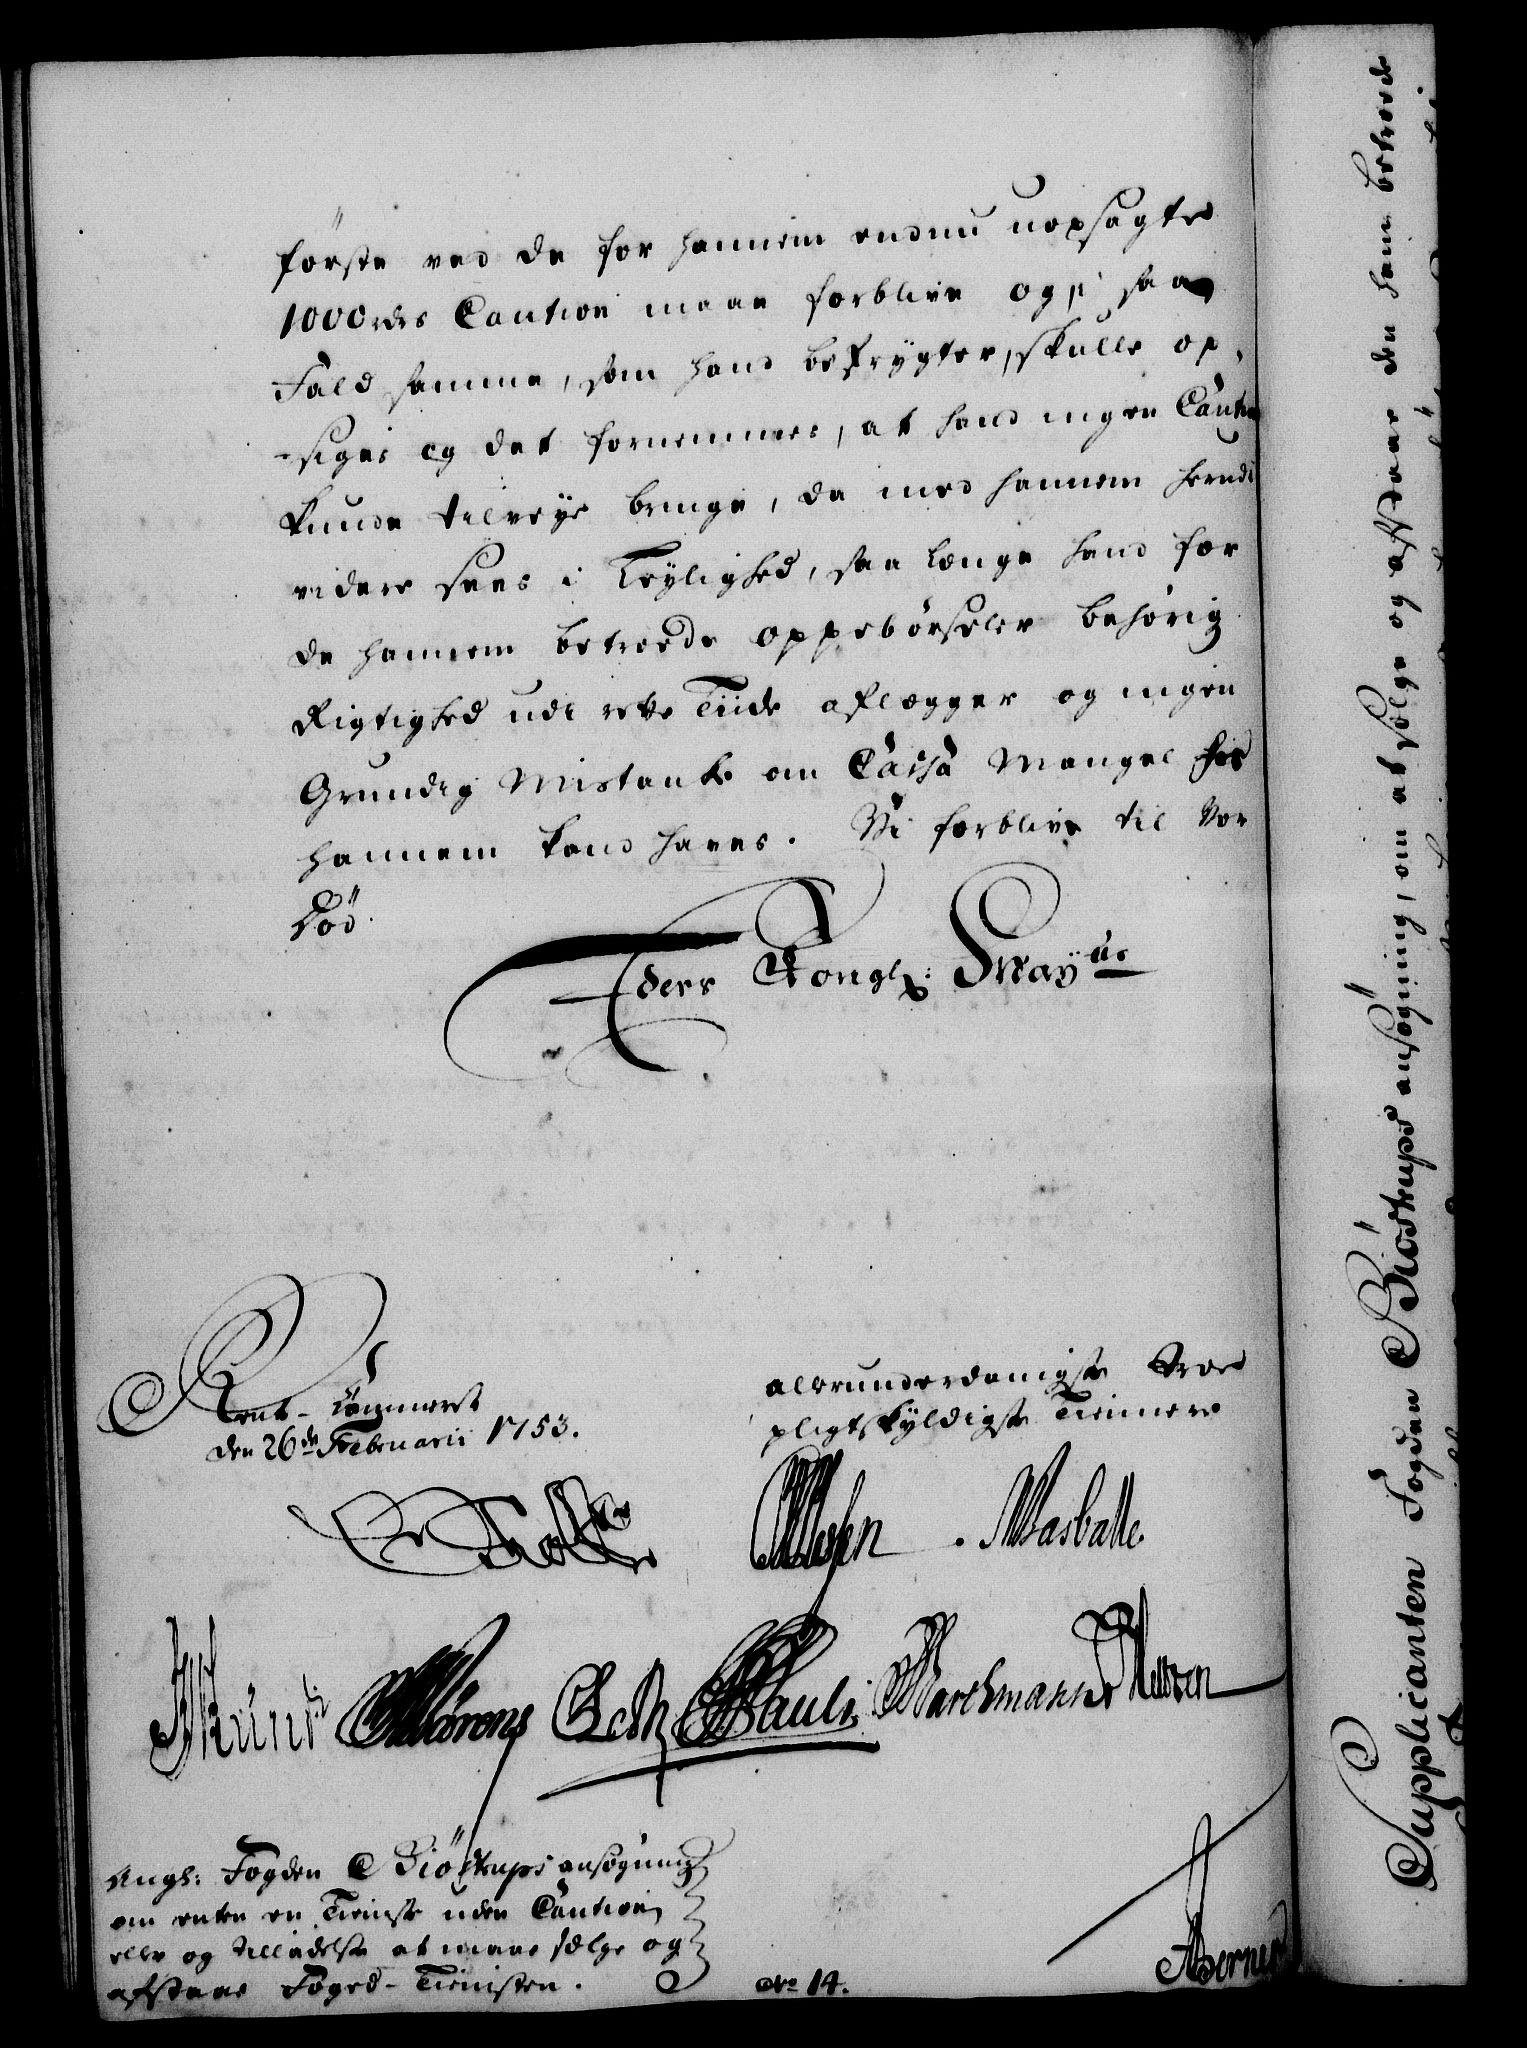 første ved de for hannem endnu uopsagte
1000 rdrs Caution maae forblive og i saa
Fald samme, som hand befrygter, skulle op-
siges og det fornemmes, at hand ingen Caution
kunde tilveye bringe, da med hannem
videre sees i Leylighed, saa længe hand for
de hannem betroede oppebørseler behørig
Rigtighed udi rette Tiide aflægger og ingen
Grundig Mistanke om Cassa Mangel hos
hannem kand haves. Vi forblive til Vor
Død
Eders Kongl: May
Rent-Cammeret
den 26de Februarii 1753.
allerunderdanigste troe
pligtskyldigste Tiennere
Holst
Wasballe
Pauli Marchmann
Angl: Fogden Biöstrups ansögning
om enten en Tienist uden Caution
eller og tilladelse at maae sælge og
afstaae Foged-Tienisten.
No 14.
Berner
Supplicanten Fogden Biöstrups ansögning, om at sælge og afstaae den ham betroede